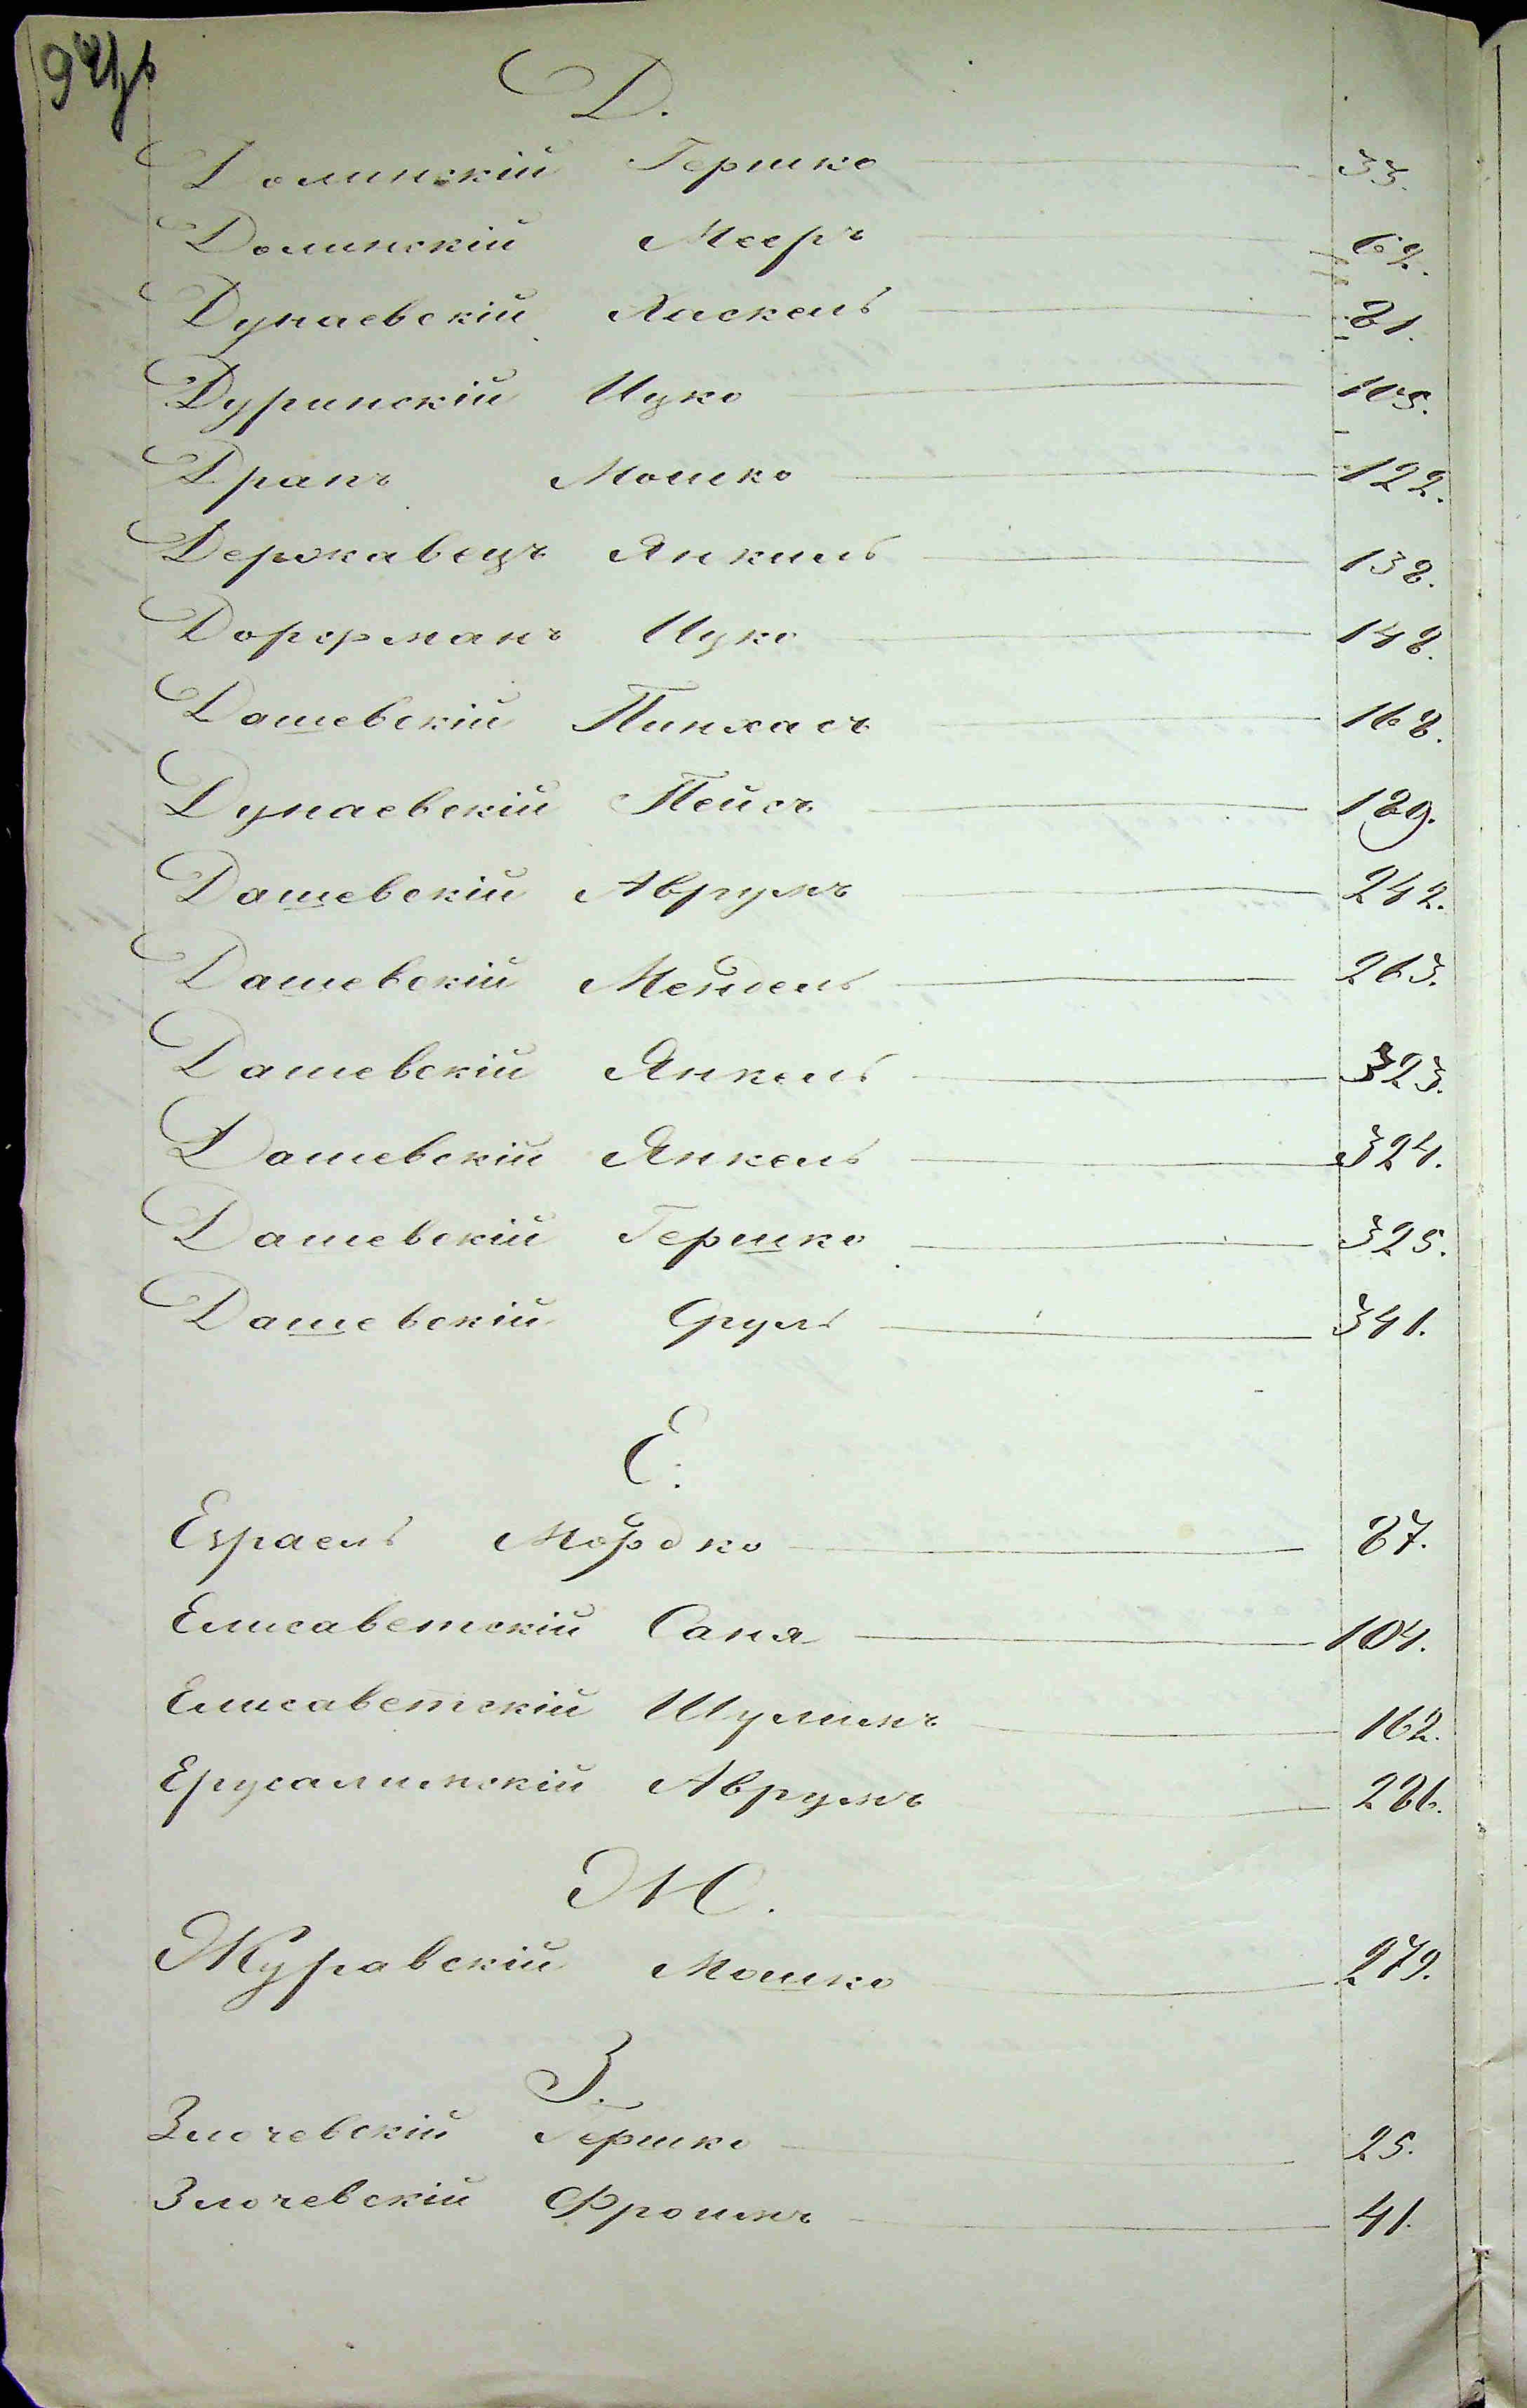 Д.
Долинскій Гершко 33.
Долинскій Мееръ 62.
Дунаевскій Хаскель 81.
Дуринскій Ицко 105.
Дранъ Мошко 122.
Державецъ Янкиль 138.
Дорфманъ Ицко 148.
Дашевскій Пинхасъ 168.
Дунаевскій Пейсъ 189.
Дашевскій Аврумъ 242.
Дашевскій Мендель 263.
Дашевскій Янкель 323.
Дашевскій Янкель 324.
Дашевскій Гершко 325.
Дашевскій Сруль 341.
Е.
Езраель Мордко 87.
Елисаветскій Саня 104.
Елисаветскій Шулимъ 162.
Ерусалимскій Аврумъ 286.
Ж.
Журавскій Мошко 279.
З.
Злочевскій Гершко 25.
Злочевскій Фроимъ 41.